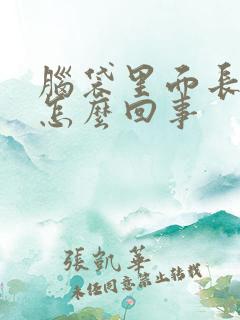 腦袋里而長
怎麼回事
張凱華
未任同意禁止转载